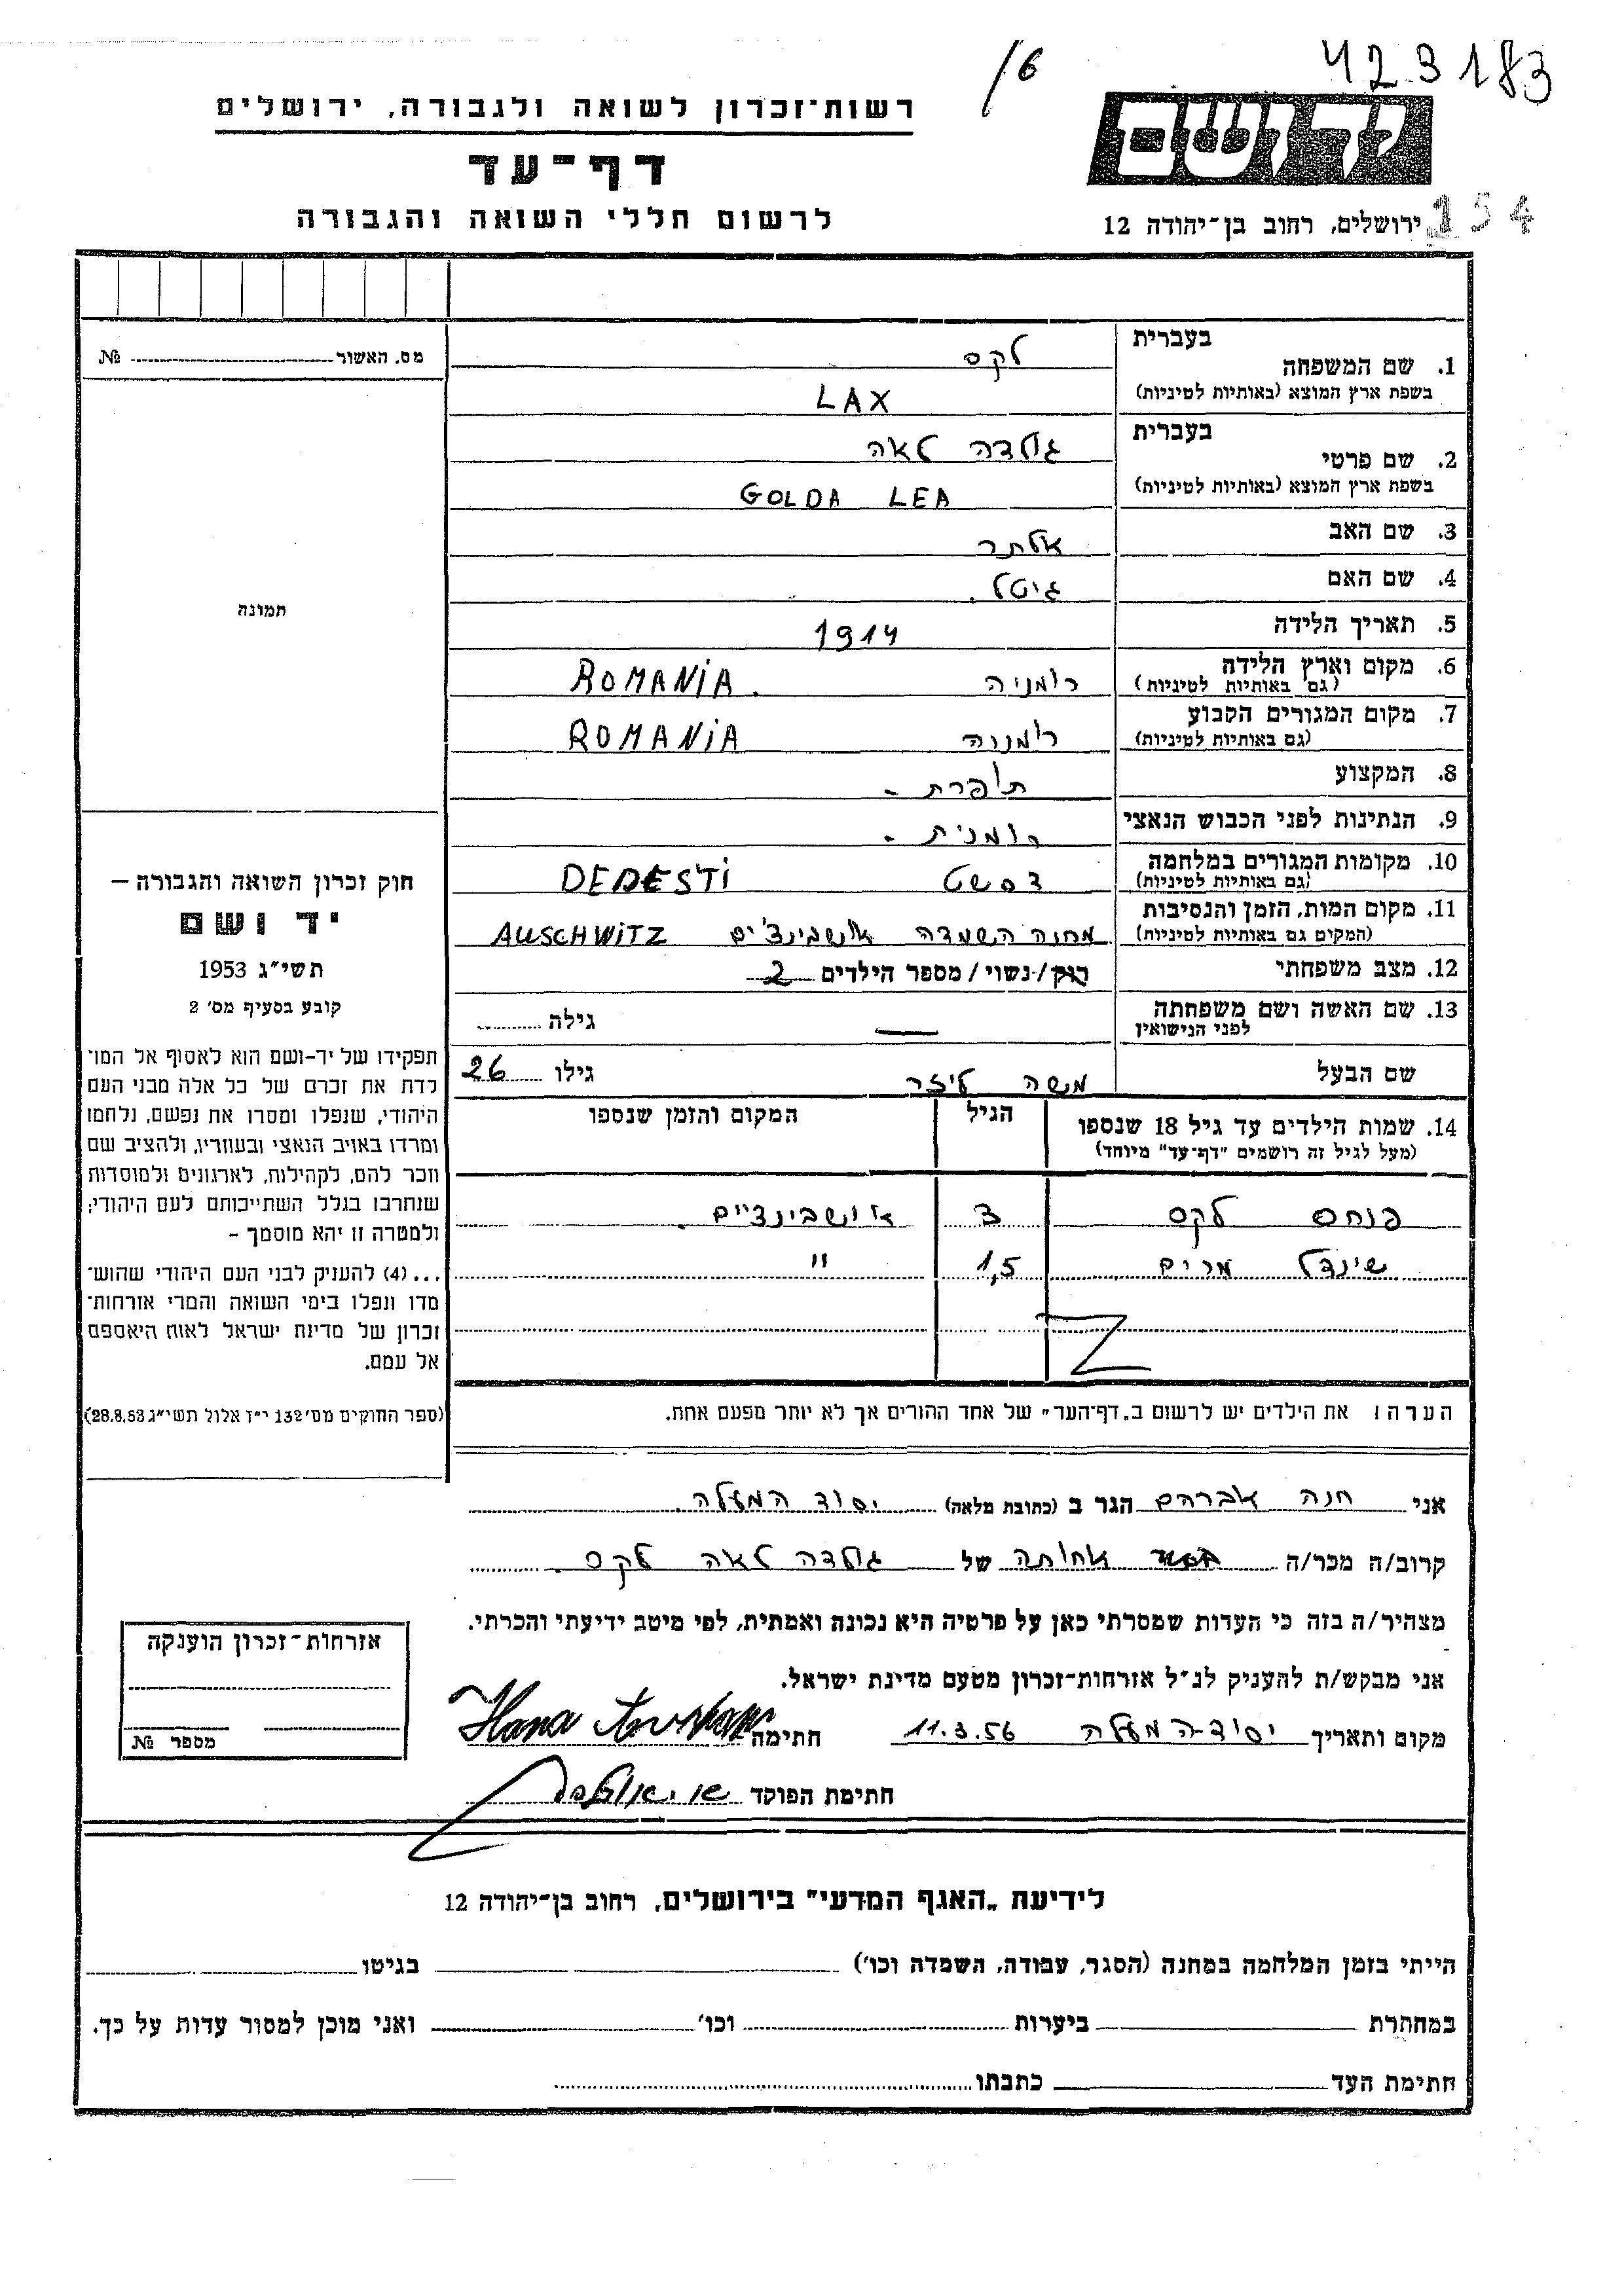 16
423183
רשות־זכרון לשואה ולגבורה, ירושלים
יד ושם
דף־עד
לרשום חללי השואה והגבורה
ירושלים, רחוב בן־יהודה 12
154
מס. האשור № 
תמונה
בעברית
1. שם המשפחה לקס
בשפת ארץ המוצא (באותיות לטיניות) LAX
בעברית
2. שם פרטי גולדה לאה
בשפת ארץ המוצא (באותיות לטיניות) GOLDA LEA
3. שם האב אלתר
4. שם האם גיטל.
5. תאריך הלידה 1914
6. מקום וארץ הלידה רומניה ROMANIA.
(גם באותיות לטיניות)
7. מקום המגורים הקבוע רומניה ROMANIA
(גם באותיות לטיניות)
8. המקצוע תופרת -
9. הנתינות לפני הכבוש הנאצי רומנית -
10. מקומות המגורים במלחמה דסשט DEDESTI
(גם באותיות לטיניות)
11. מקום המות, הזמן והנסיבות מחנה השמדה אושבינצ'ים AUSCHWITZ
(המקום גם באותיות לטיניות)
12. מצב משפחתי רוק/נשוי/מספר הילדים 2
13. שם האשה ושם משפחתה — גילה
לפני הנישואין
שם הבעל משה ליזר גילו 26
14. שמות הילדים עד גיל 18 שנספו הגיל המקום והזמן שנספו
(מעל לגיל זה רושמים "דף־עד" מיוחד)
פנחס לקס 3 אושבינציים.
שינדל מרים 1,5 "
הערה: את הילדים יש לרשום ב„דף־העד" של אחד ההורים אך לא יותר מפעם אחת.
חוק זכרון השואה והגבורה –
יד ושם
תשי"ג 1953
קובע בסעיף מס' 2
תפקידו של יד-ושם הוא לאסוף אל המו־
לדת את זכרם של כל אלה מבני העם
היהודי, שנפלו ומסרו את נפשם, נלחמו
ומרדו באויב הנאצי ובעוזריו, ולהציב שם
וזכר להם, לקהילות, לארגונים ולמוסדות
שנחרבו בגלל השתייכותם לעם היהודי;
ולמטרה זו יהא מוסמך –
...(4) להעניק לבני העם היהודי שהוש־
מדו ונפלו בימי השואה והמרי אזרחות־
זכרון של מדינת ישראל לאות היאספם
אל עמם.
(ספר החוקים מס' 132 י"ז אלול תשי"ג 28.8.53)
אני חנה אברהם הגר ב (כתובת מלאה) יסוד המעלה.
קרוב/ה מכר/ה אחותה של גולדה לאה לקס.
מצהיר/ה בזה כי העדות שמסרתי כאן על פרטיה היא נכונה ואמתית, לפי מיטב ידיעתי והכרתי.
אני מבקש/ת להעניק לנ"ל אזרחות-זכרון מטעם מדינת ישראל.
מקום ותאריך יסוד-המעלה 11.3.56 חתימה Hana
חתימת הפוקד
אזרחות־זכרון הוענקה
מספר №
לידיעת „האגף המדעי" בירושלים, רחוב בן־יהודה 12
הייתי בזמן המלחמה במחנה (הסגר, עבודה, השמדה וכו') בגיטו
במחתרת ביערות וכו' ואני מוכן למסור עדות על כך.
חתימת העד כתבתו